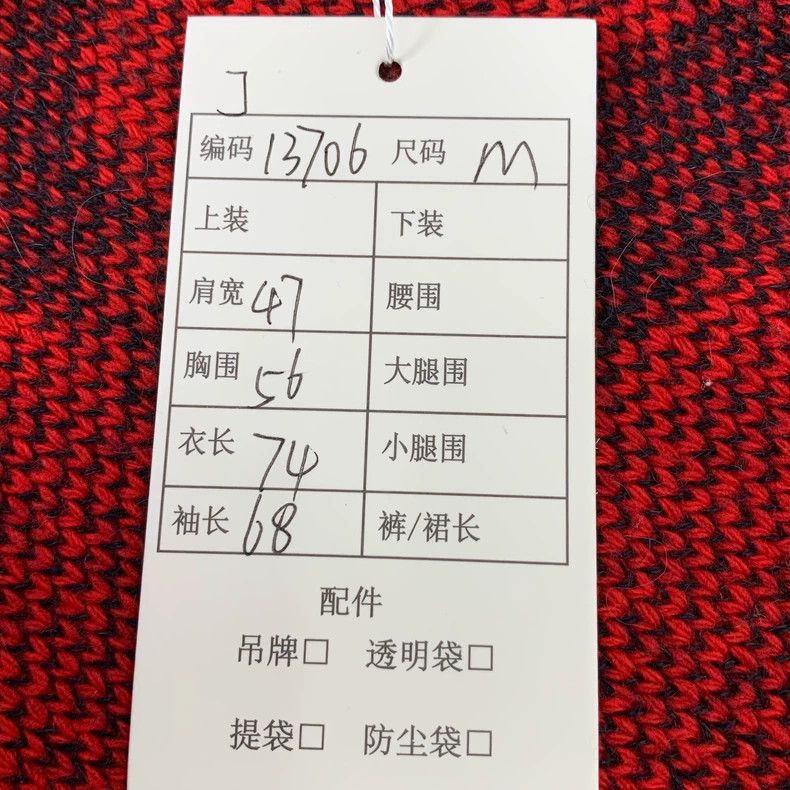 J
编码 13706 尺码 M
上装 下装
肩宽 47 腰围
胸围 56 大腿围
衣长 74 小腿围
袖长 68 裤/裙长
配件
吊牌□ 透明袋□
提袋□ 防尘袋□